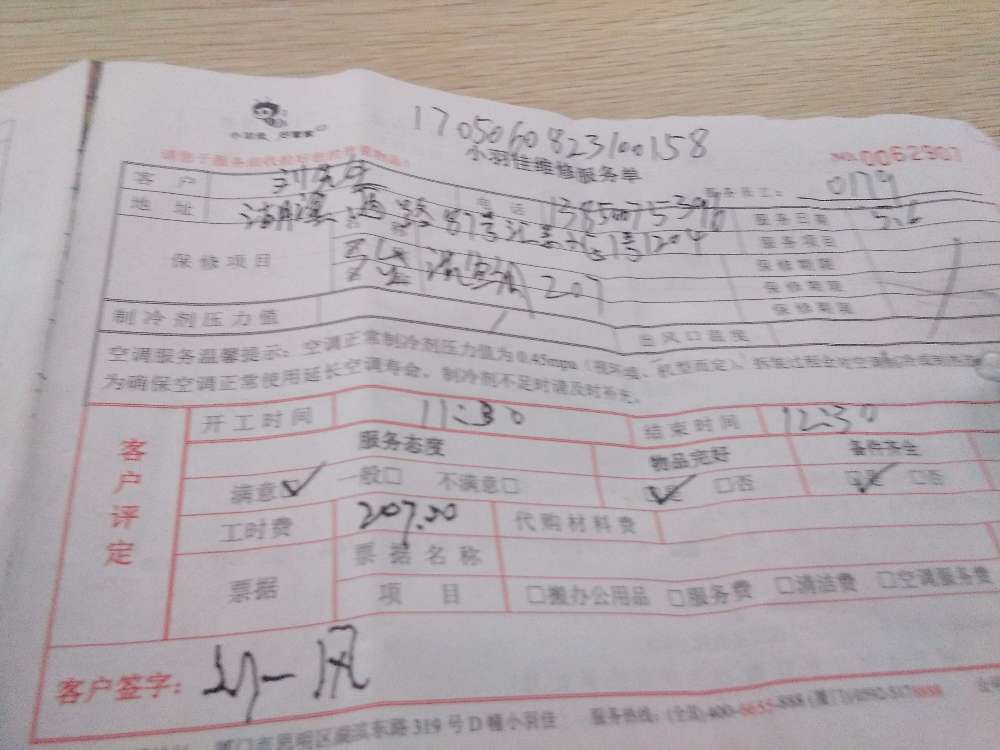 1705060823100158
小羽佳 巴管家
小羽佳维修服务单
NO.0062907
请您于服务后收好您的贵重物品!
客户 刘先生 电话 服务员工: 0179
地址 87号 1号1204 服务日期 5.6
保修项目 207 服务项目
保修期限
保修期限
保修期限
制冷剂压力值 出风口温度
空调服务温馨提示: 空调正常制冷剂压力值为0.45mpa (视环境、机型而定)
为确保空调正常使用延长空调寿命, 制冷剂不足时请及时补充。
客户评定
开工时间 11:30 结束时间 12:30
服务态度 物品完好 备件齐全
满意☑ 一般□ 不满意□ ☑是 □否 ☑是 □否
工时费 207.00 代购材料费
票据 票据名称
项目 □搬办公用品 □服务费 □清洁费 □空调服务费
客户签字: 刘一凤
厦门市思明区湖滨东路319号D幢小羽佳 服务热线: (全国)400-6655-888 (厦门)0592-5178888